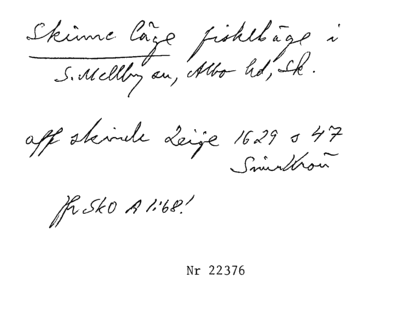 Skinne läge fiskläge i
S. Mellby sn, Albo hd, Sk.
aff skinde Leije 1629 s 47
Jfr SkO A 1:68!
Nr 22376